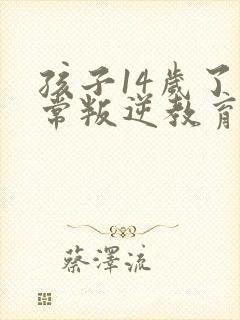 孩子14歲了
常叛逆教育
蔡澤流